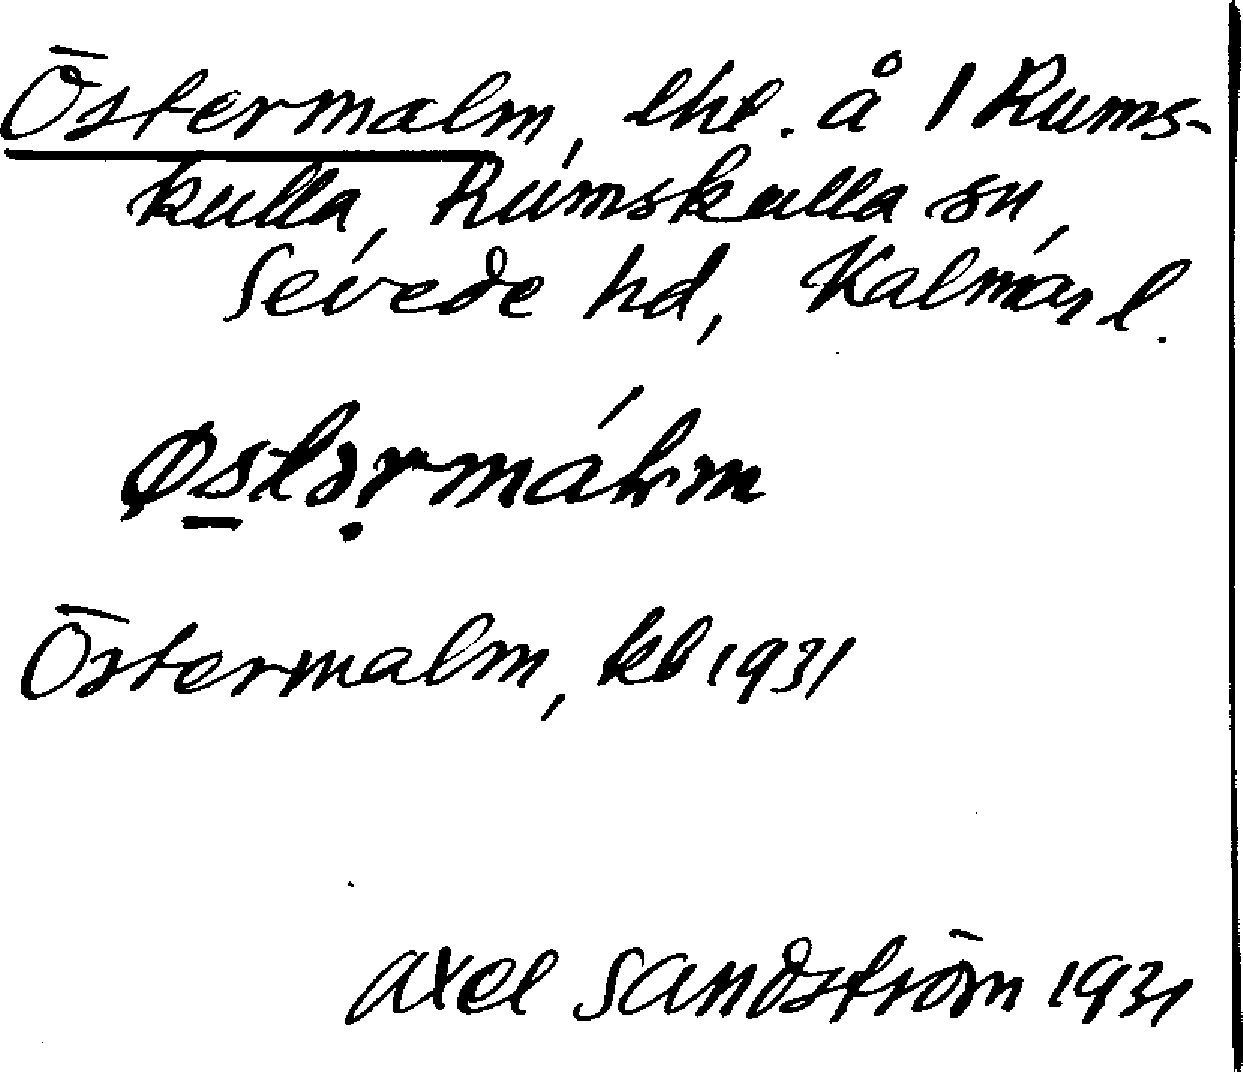 Östermalm, lht. å 1 Rums-
kulla, Rumskulla sn,
Sevede hd, Kalmar l.
øs̠tə̣rmáḷm
Östermalm, kb 1931
Axel Sandström 1931